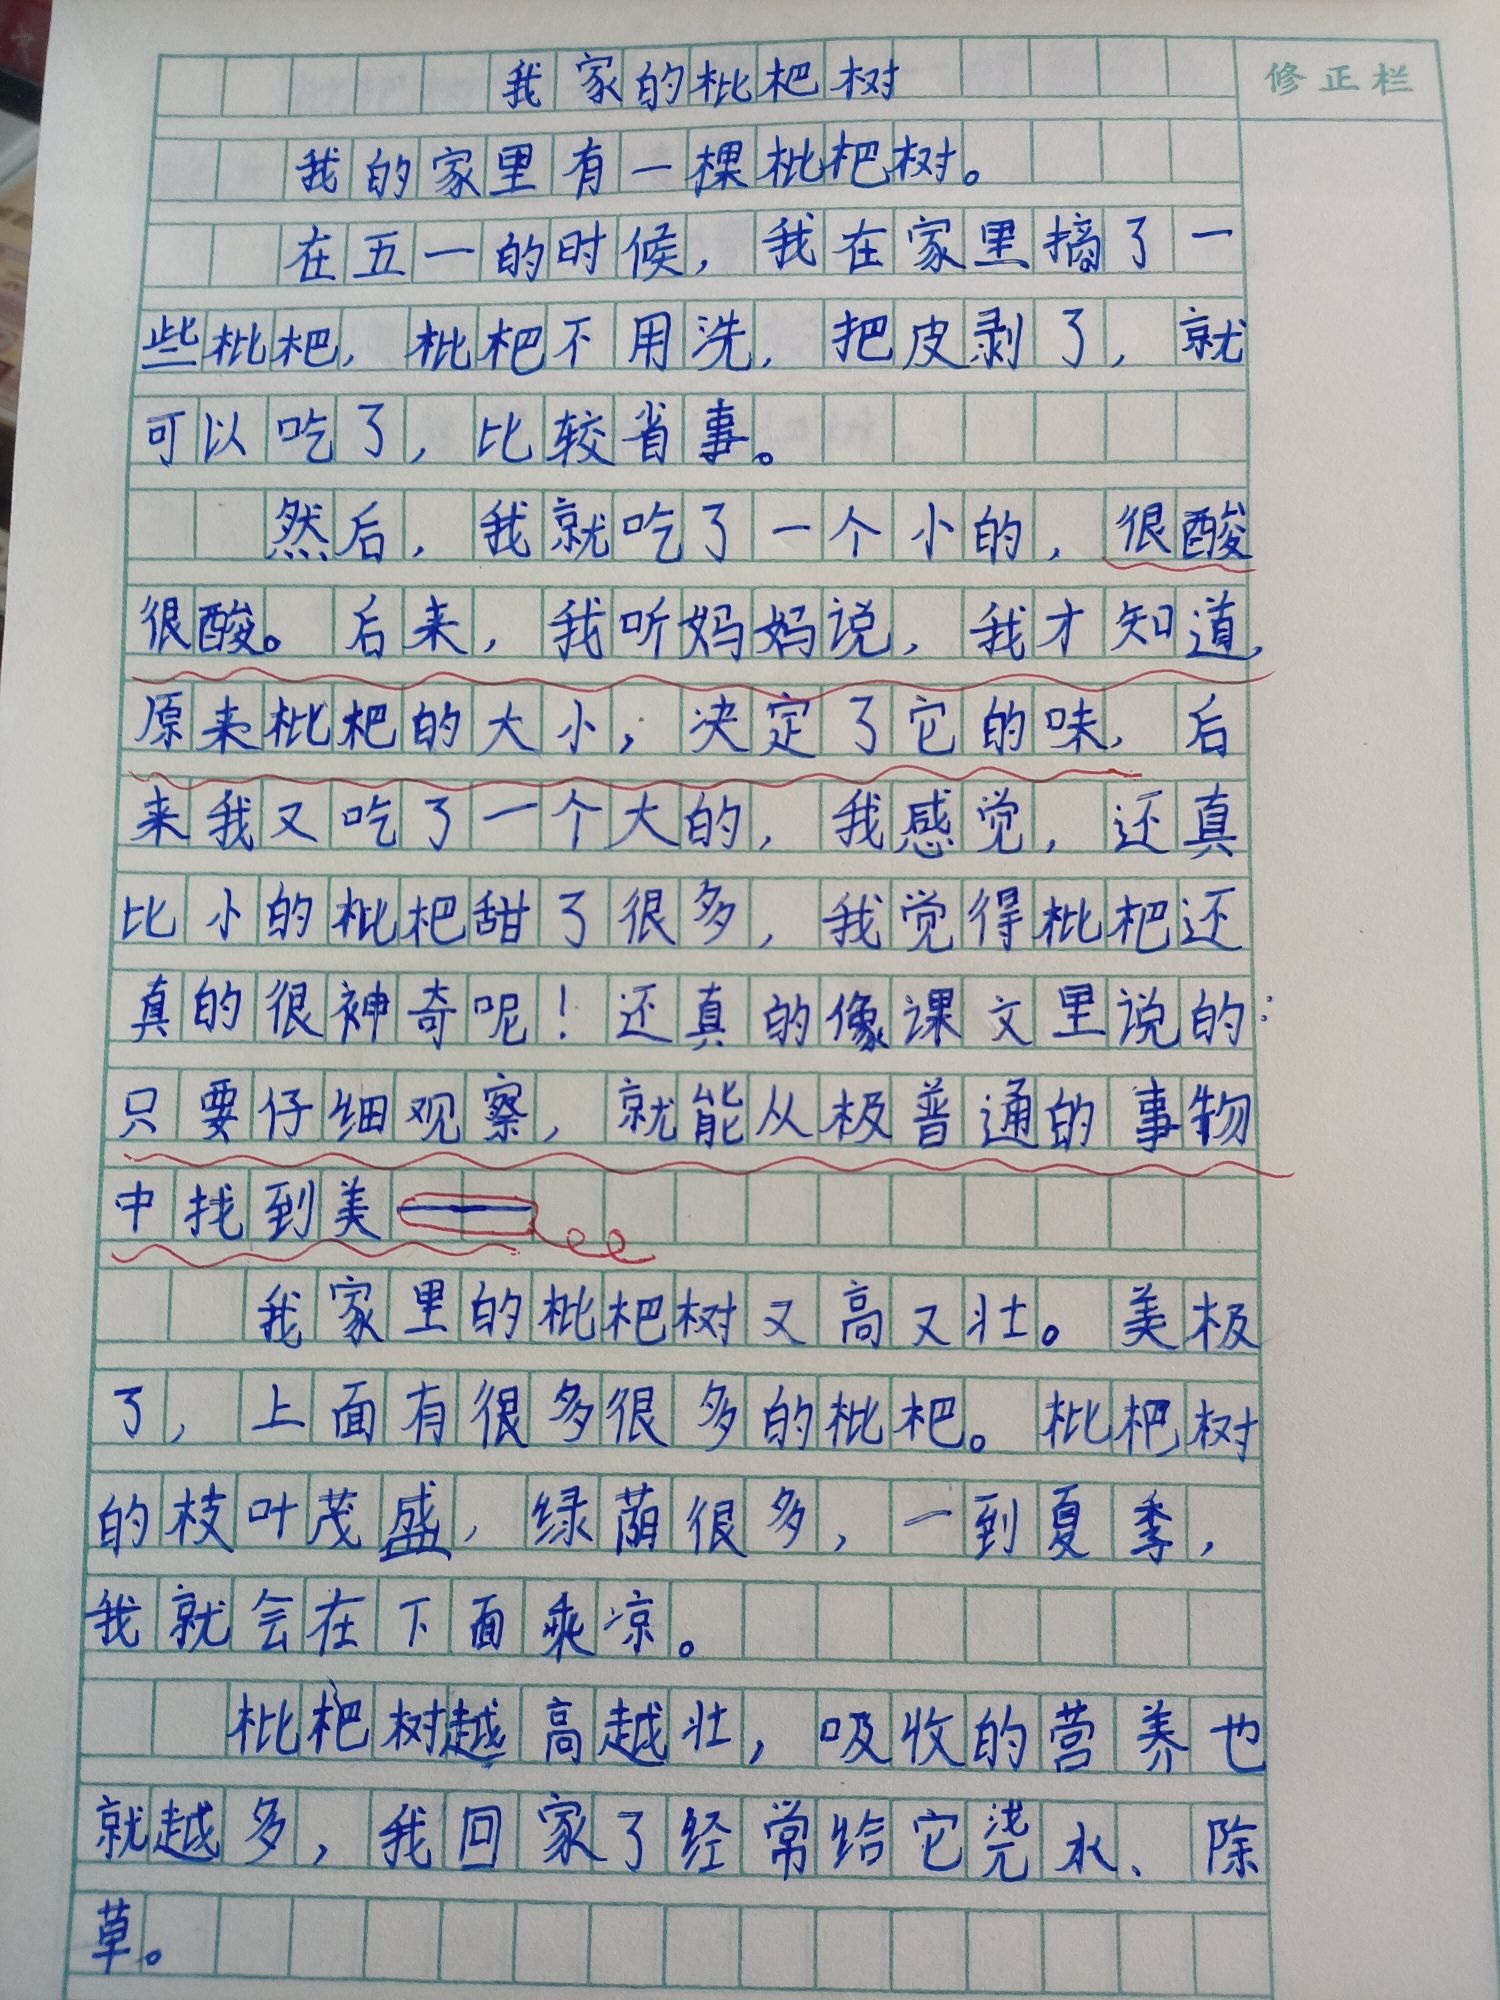 修正栏
我家的枇杷树
我的家里有一棵枇杷树。
在五一的时候，我在家里摘了一
些枇杷，枇杷不用洗，把皮剥了，就
可以吃了，比较省事。
然后，我就吃了一个小的，很酸
很酸。后来，我听妈妈说，我才知道，
原来枇杷的大小，决定了它的味，后
来我又吃了一个大的，我感觉，还真
比小的枇杷甜了很多，我觉得枇杷还
真的很神奇呢！还真的像课文里说的：
只要仔细观察，就能从极普通的事物
中找到美——
我家里的枇杷树又高又壮。美极
了，上面有很多很多的枇杷。枇杷树
的枝叶茂盛，绿荫很多，一到夏季，
我就会在下面乘凉。
枇杷树越高越壮，吸收的营养也
就越多，我回家了经常给它浇水、除
草。